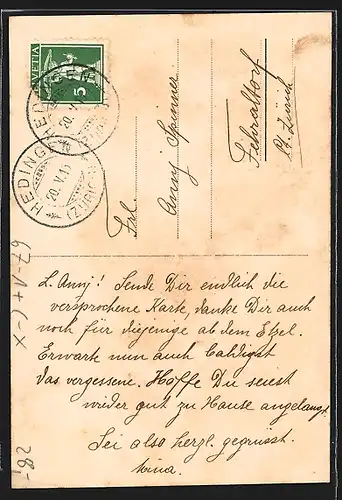 HELVETIA
5
HEDINGEN
20.V.1
(ZÜRICH)
Frl.
Anny Spinner
Fehraltorf
Kt. Zürich
L. Anny! Sende Dir endlich die
versprochene Karte, danke Dir auch
noch für diejenige ab dem Etzel.
Erwarte nun auch baldigst
das vergessene. Hoffe Du seiest
wieder gut zu Hause angelangt.
Sei also herzl. gegrüsst.
28,-